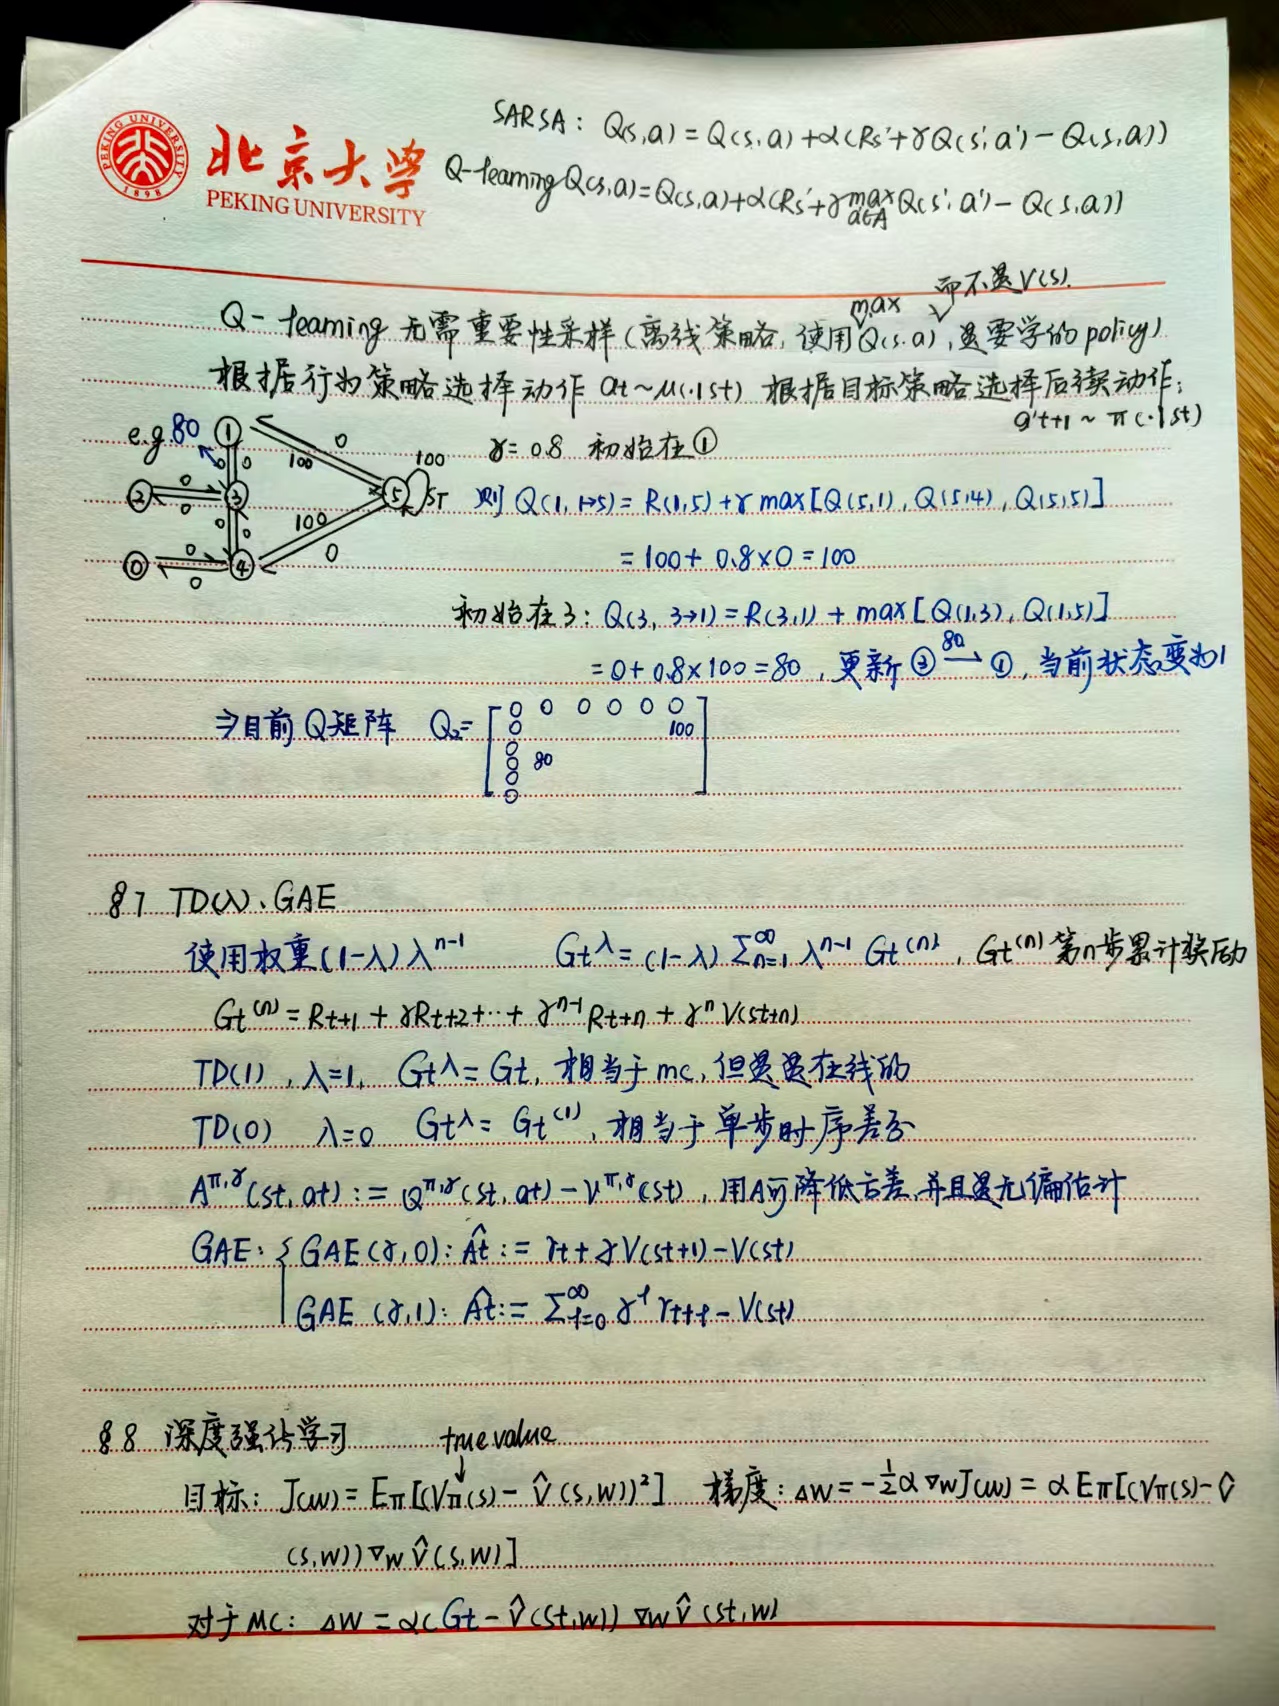 PEKING UNIVERSITY
1898
北京大学
PEKING UNIVERSITY
SARSA: Q(s,a) = Q(s,a) + α(Rs' + γQ(s',a') - Q(s,a))
Q-learning Q(s,a) = Q(s,a) + α(Rs' + γ max a∈A Q(s',a') - Q(s,a))
max 而不是V(s).
Q-learning 无需重要性采样(离线策略,使用Q(s.a),是要学的policy)
根据行为策略选择动作 at~μ(·|st) 根据目标策略选择后续动作:
a't+1 ~ π(·|st)
e.g. 80 ① 0 100 100 γ=0.8 初始在①
0 0
② 0 0 ③ ⑤ ST 则 Q(1,1→5) = R(1,5) + γ max[Q(5,1), Q(5,4), Q(5,5)]
0 0 100 0
⓪ 0 0 ④ = 100 + 0.8×0 = 100
初始在3: Q(3, 3→1) = R(3,1) + max[Q(1,3), Q(1,5)]
= 0 + 0.8×100 = 80, 更新 ③ 80→ ①, 当前状态变为1
⇒目前Q矩阵 Q2= [ 0 0 0 0 0 0
0 100
0
0 80
0
0 ]
§7 TD(λ)、GAE
使用权重(1-λ)λ^n-1 Gt^λ = (1-λ) Σ∞n=1 λ^n-1 Gt^(n), Gt^(n) 第n步累计奖励
Gt^(n) = Rt+1 + γRt+2 + ··+ γ^n-1 Rt+n + γ^n V(st+n)
TD(1), λ=1, Gt^λ = Gt, 相当于mc, 但是是在线的
TD(0) λ=0 Gt^λ = Gt^(1), 相当于单步时序差分
A^π,γ(st, at) := Q^π,γ(st, at) - V^π,γ(st), 用A可降低方差,并且是无偏估计
GAE: { GAE(γ,0): Ât := rt + γV(st+1) - V(st)
GAE (γ,1): Ât := Σ∞t=0 γ^t rt+t - V(st)
§8 深度强化学习 true value
目标: J(w) = Eπ[(Vπ(s) - V̂(s,w))²] 梯度: ΔW = -½α∇wJ(w) = αEπ[(Vπ(s) - V̂
(s,w))∇w V̂(s,w)]
对于MC: ΔW = α(Gt - V̂(st,w)) ∇w V̂(st,w)